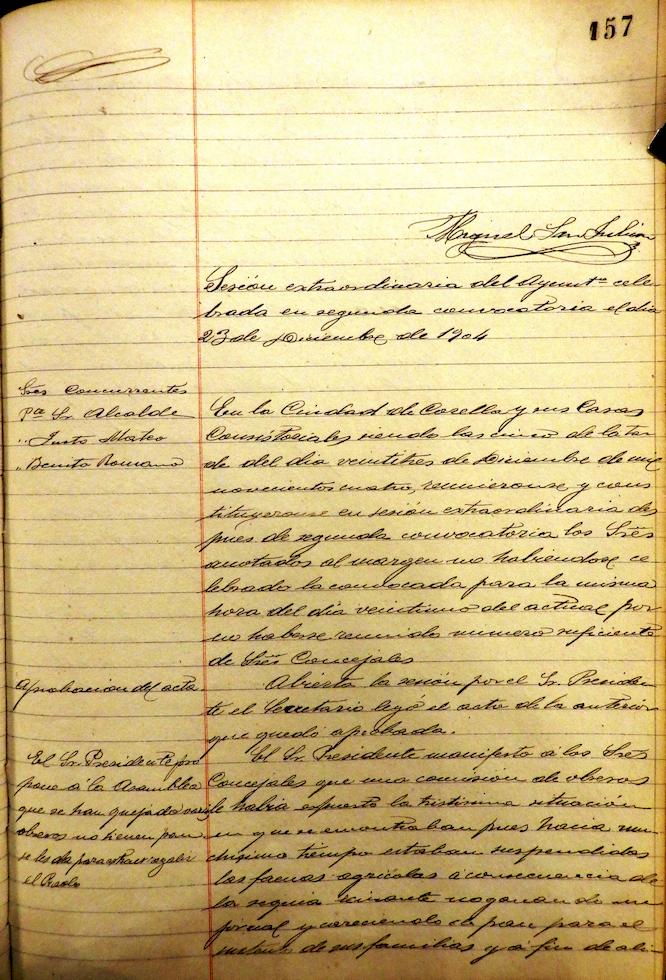 157
Miguel San Julian
Sesión extraordinaria del Ayuntº cele-
brada en segunda convocatoria el dia
23 de Diciembre de 1904
Sres Concurrentes
Pte Sr. Alcalde
" Justo Mateo
" Benito Romano
En la Ciudad de Corella y sus Casas
Consistoriales siendo las cinco de la tar
de del dia veintitres de Diciembre de mil
novecientos cuatro, reunieronse y cons
tituyeronse en sesión extraordinaria des
pues de segunda convocatoria los Sres
anotados al margen no habiendose ce
lebrado la convocada para la misma
hora del dia veintiuno del actual por
no haberse reunido numero suficiente
de Sres Concejales
Aprobacion del acta.
Abierta la sesión por el Sr. Presiden
te el Secretario leyó el acta de la anterior
que quedó aprobada.
El Sr. Presidente pro
pone á la Asamblea
que se han quejado varios
obreros no tienen pan
se les da para
el Pueblo
El Sr. Presidente manifestó á los Sres
Concejales que una comision de obreros
le habia expuesto la tristisima situación
en que se encontraban pues hacia mu
chisimo tiempo estaban suspendidas
las faenas agricolas á consecuencia de
la sequia reinante no ganando un
jornal y careciendo de pan para el
sustento de sus familias y á fin de ali